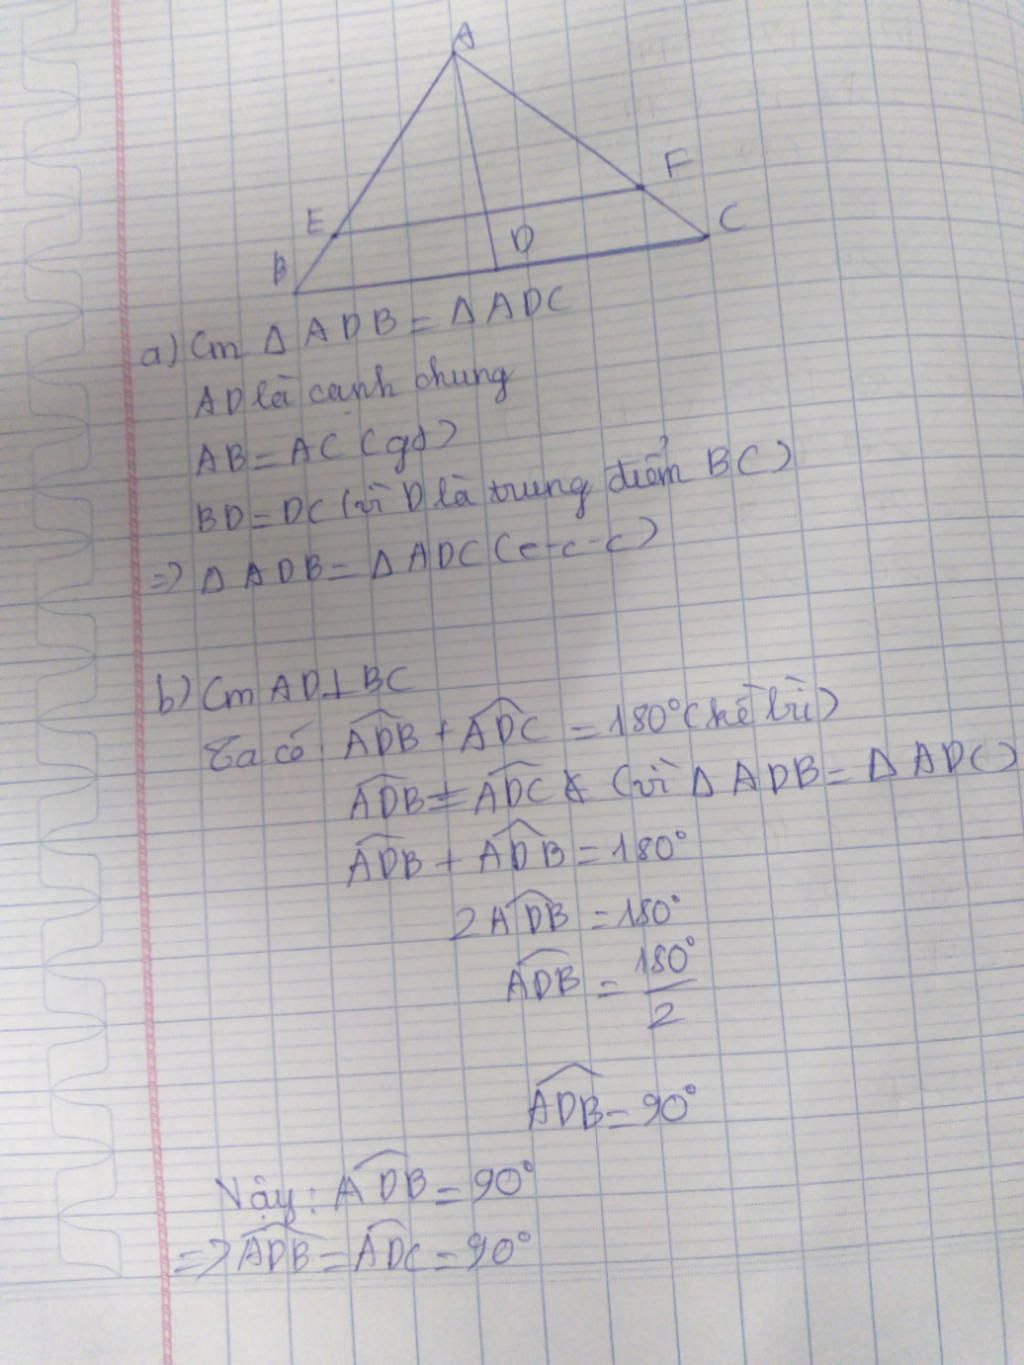 A
E
F
B
D
C
a) Cm Δ ADB = Δ ADC
AD là cạnh chung
AB = AC (gt)
BD = DC (vì D là trung điểm BC)
=> Δ ADB = Δ ADC (c-c-c)
b) Cm AD⊥BC
Ta có: \widehat{ADB} + \widehat{ADC} = 180° (kề bù)
\widehat{ADB} = \widehat{ADC} (vì Δ ADB = Δ ADC)
\widehat{ADB} + \widehat{ADB} = 180°
2\widehat{ADB} = 180°
\widehat{ADB} = \frac{180°}{2}
\widehat{ADB} = 90°
Vậy: \widehat{ADB} = 90°
=> \widehat{ADB} = \widehat{ADC} = 90°